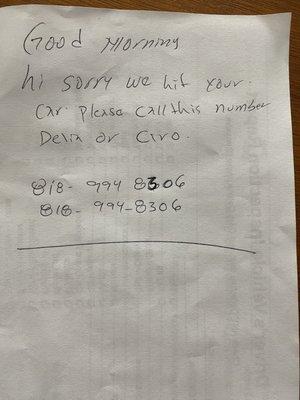 Good Morning
hi sorry we hit your.
Car. please call this number
Delia or Ciro.
818- 994 8306
818- 994-8306